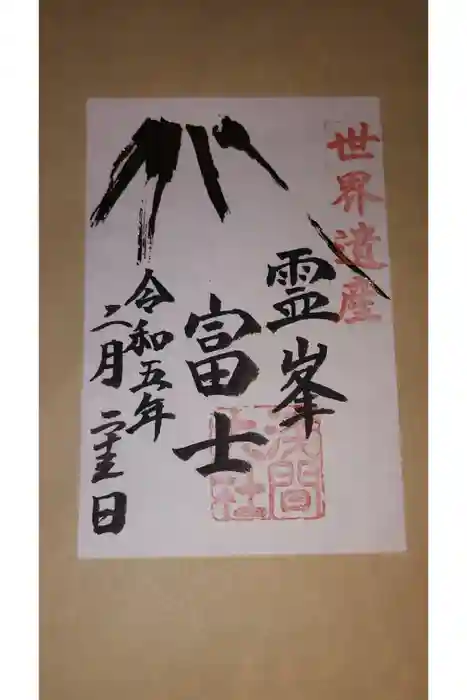 世界遺産
霊峯
富士
浅間
大社
令和五年
二月二十三日